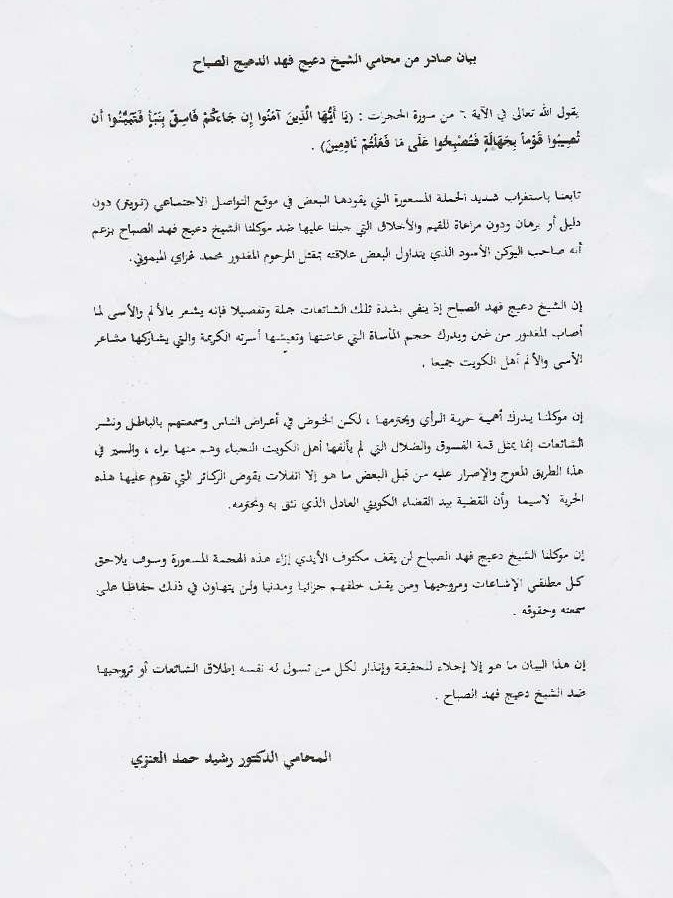 بيان صادر من محامي الشيخ دعيج فهد الدعيج الصباح
يقول الله تعالى في الآية ٦ من سورة الحجرات : (يَا أَيُّهَا الَّذِينَ آمَنُوا إِن جَاءكُمْ فَاسِقٌ بِنَبَأٍ فَتَبَيَّنُوا أَن
تُصِيبُوا قَوْماً بِجَهَالَةٍ فَتُصْبِحُوا عَلَى مَا فَعَلْتُمْ نَادِمِينَ) .
تابعنا باستغراب شديد الحملة المسعورة التي يقودها البعض في موقع التواصل الاجتماعي (تويتر) دون
دليل أو برهان ودون مراعاة للقيم والأخلاق التي جبلنا عليها ضد موكلنا الشيخ دعيج فهد الصباح بزعم
أنه صاحب اليوكن الأسود الذي يتداول البعض علاقته بمقتل المرحوم المغدور محمد غزاي الميموني.
إن الشيخ دعيج فهد الصباح إذ ينفي بشدة تلك الشائعات جملة وتفصيلا فإنه يشعر بالألم والأسى لما
أصاب المغدور من غبن ويدرك حجم المأساة التي عاشتها وتعيشها أسرته الكريمة والتي يشاركها مشاعر
الأسى والألم أهل الكويت جميعا .
إن موكلنا يدرك أهمية حرية الرأي ويحترمها ، لكن الخوض في أعراض الناس وسمعتهم بالباطل ونشر
الشائعات إنما يمثل قمة الفسوق والضلال التي لم يألفها أهل الكويت النجباء وهم منها براء ، والسير في
هذا الطريق المعوج والإصرار عليه من قبل البعض ما هو إلا انفلات يقوض الركائز التي تقوم عليها هذه
الحرية لاسيما وأن القضية بيد القضاء الكويتي العادل الذي نثق به ونحترمه.
إن موكلنا الشيخ دعيج فهد الصباح لن يقف مكتوف الأيدي إزاء هذه الهجمة المسعورة وسوف يلاحق
كل مطلقي الإشاعات ومروجيها ومن يقف خلفهم جزائيا ومدنيا ولن يتهاون في ذلك حفاظا على
سمعته وحقوقه .
إن هذا البيان ما هو إلا إجلاء للحقيقة وإنذار لكل من تسول له نفسه إطلاق الشائعات أو ترويجها
ضد الشيخ دعيج فهد الصباح .
المحامي الدكتور رشيد حمد العنزي